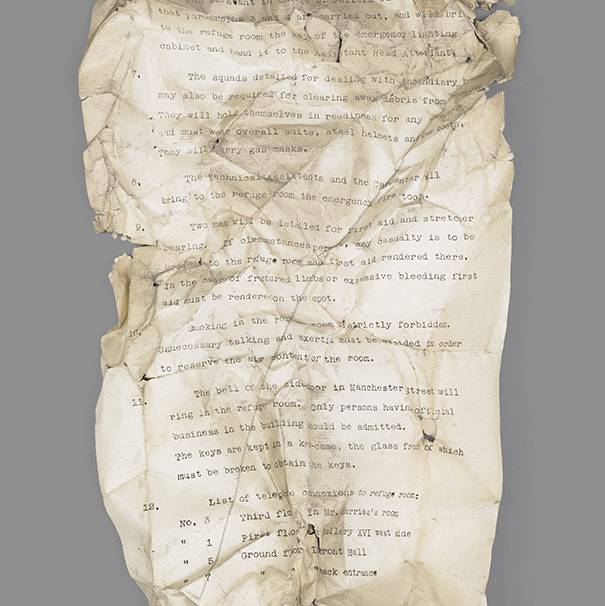 that paragraphs 3 and 4 are carried out, and will bri
to the refuge room the key of the emergency lighting
cabinet and hand it to the Assistant Head Attendant.
7. The squads detailed for dealing with incendiary b
may also be required for clearing away debris from
They will hold themselves in readiness for any
and must wear overall suits, steel helmets and
They will carry gas masks.
8. The Technical Assistants and the Carpenter will
bring to the refuge room the emergency fire tools.
9. Two men will be detailed for first aid and stretcher
bearing. If circumstances permit, any casualty is to be
brought to the refuge room and first aid rendered there.
In the case of fractured limbs or excessive bleeding first
aid must be rendered on the spot.
10. Smoking in the refuge room strictly forbidden.
Unnecessary talking and exertion must be avoided in order
to reserve the air content of the room.
11. The bell of the side door in Manchester Street will
ring in the refuge room. Only persons having official
business in the building should be admitted.
The keys are kept in a key-case, the glass front of which
must be broken to obtain the keys.
12. List of telephone connexions to refuge room:
No. 3 Third floor In Mr. room
" 1 First floor Gallery XVI west side
" 5 Ground floor Front Hall
" 7 " " Back entrance